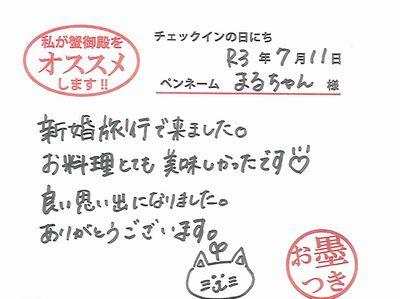 私が蟹御殿を
オススメ
します!!
チェックインの日にち
R3年7月11日
ペンネーム まるちゃん 様
新婚旅行で来ました。
お料理とても美味しかったです♡
良い思い出になりました。
ありがとうございます。
お墨
つき